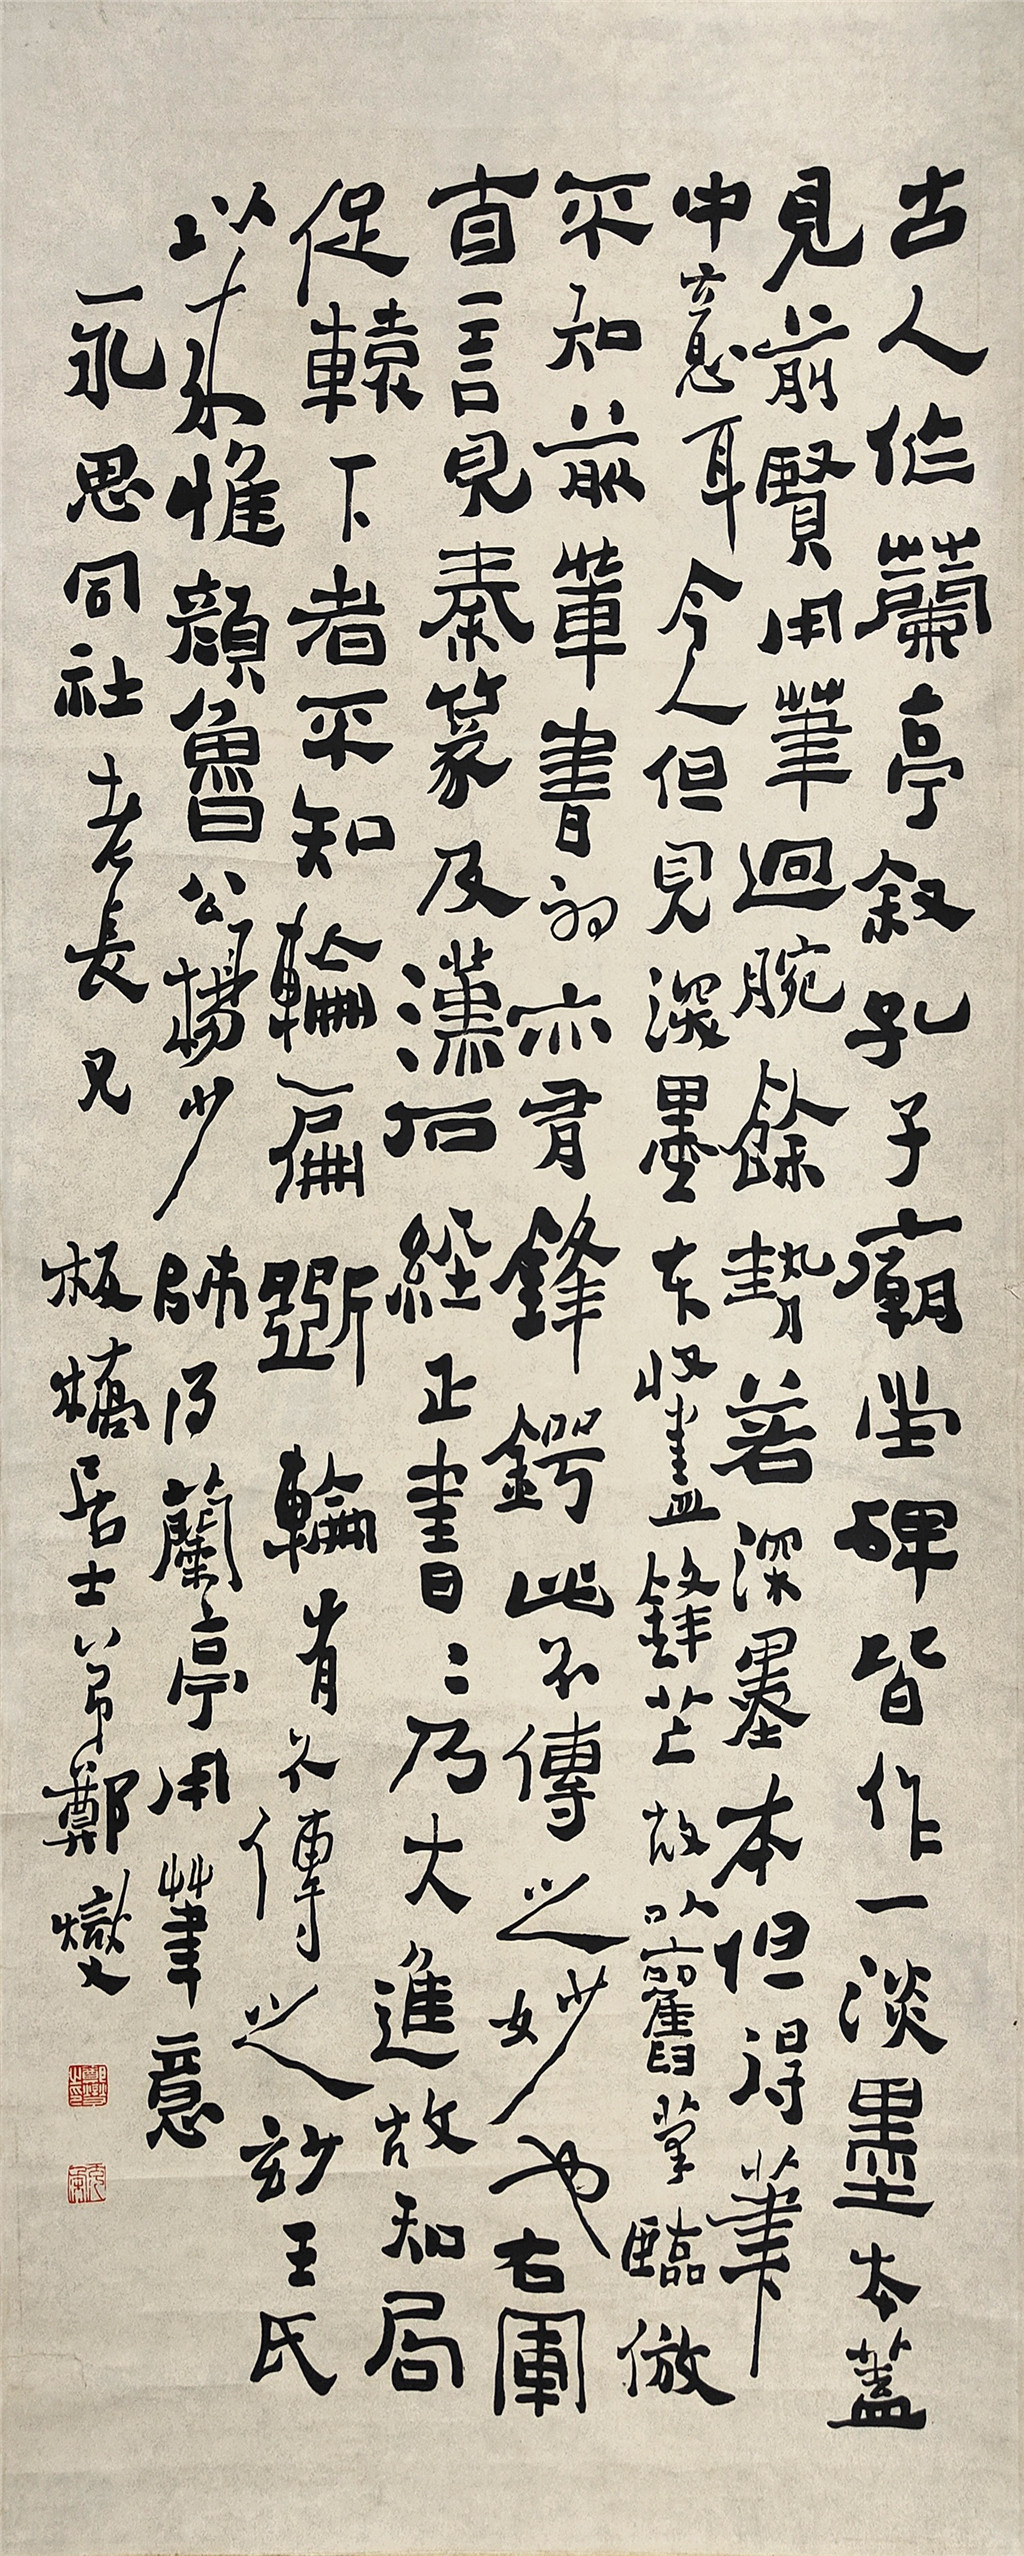 古人作蘭亭敘孔子廟堂碑皆作一淡墨本蓋
見前賢用筆迴腕餘勢若深墨本但得筆
中意耳今人但見深墨本收書鋒芒故以舊筆臨倣
不知前輩書初亦有鋒鍔此不傳之妙也右軍
自言見秦篆及漢石經正書書乃大進故知局
促轅下者不知輪扁斲輪有不傳之妙王氏
以來惟顏魯公楊少師得蘭亭用筆意
永思同社老長兄 板橋居士弟鄭燮